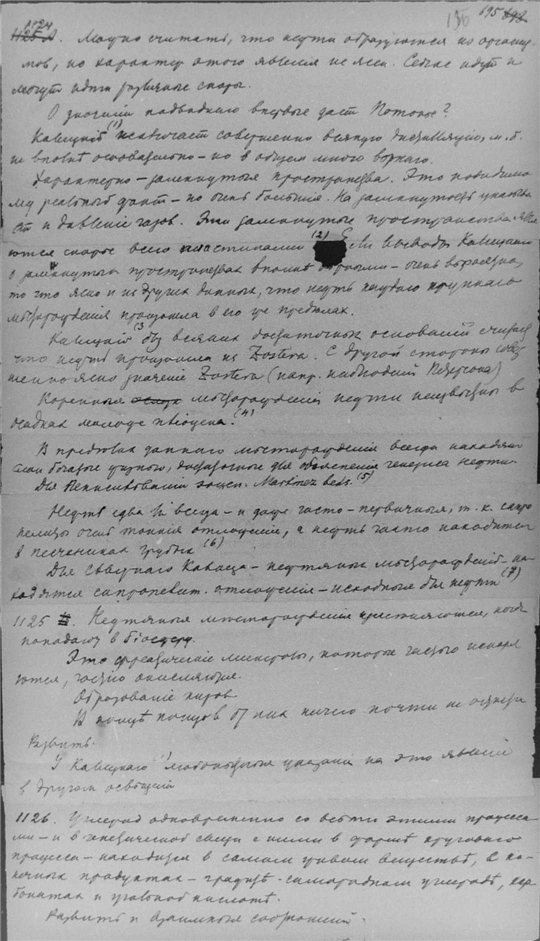 1124
195
1125
Можно считать, что нефти образуются из организ
мов, но характер этого явления не ясен. Сейчас идут и
могут идти различные споры.
О значении подводного впервые дает Потонье?
Калицкий (1) исключает совершенно всякую дистилляцию, м. б.
не вполне основательно – но в общем много верного.
Характерно – замкнутые пространства. Это, повидимо
му реальный факт – но очень большие. На замкнутость указыва
ет и давление газов. Эти замкнутые пространства явля
ются скорее всего пластинами (2) Если выводы Калицкого
о замкнутых пространствах вполне верны – очень вероятно,
то что ясно и из других данных, что нефть каждого крупного
месторождения произошла в его же пределах.
Калицкий (3) без всяких достаточных оснований считает
что нефть произошла из Zostera. С другой стороны совер
шенно ясно значение Zostera (напр. наблюдений Петерсена)
Коренные месторождения нефти неизвестны в
осадках моложе плиоцена. (4)
В пределах данного месторождения всегда находят
слои богатые фауной, достаточные для объяснения генезиса нефти
Для Пенсильвании эоцен. Martinez beds. (5)
Нефть едва ли всегда – и даже часто – первичная, т. к. сапро
пелиты очень тонкие отложения, а нефть часто находится
в песчаниках грубых (6)
Для северного Кавказа – нефтяных месторождений – на
ходятся сапропелит. отложения – исходные для нефти (7)
1125 Нефтяные месторождения изменяются, когда
попадают в биосферу.
Это фреатические минералы, которые частью испаря
ются, частью окисляются.
Образование киров.
В конце концов от них ничего почти не остается
Развить.
У Калицкого любопытные указания на это явление
в другом освещении
1126. Углерод одновременно со всеми этими процесса
ми – и в генетической связи с ними в форме кругового
процесса – находится в самом живом веществе, в ко
нечных продуктах – графите – самородном углероде, кар
бонатах и угольной кислоте.
Развить и взаимные соотношения.